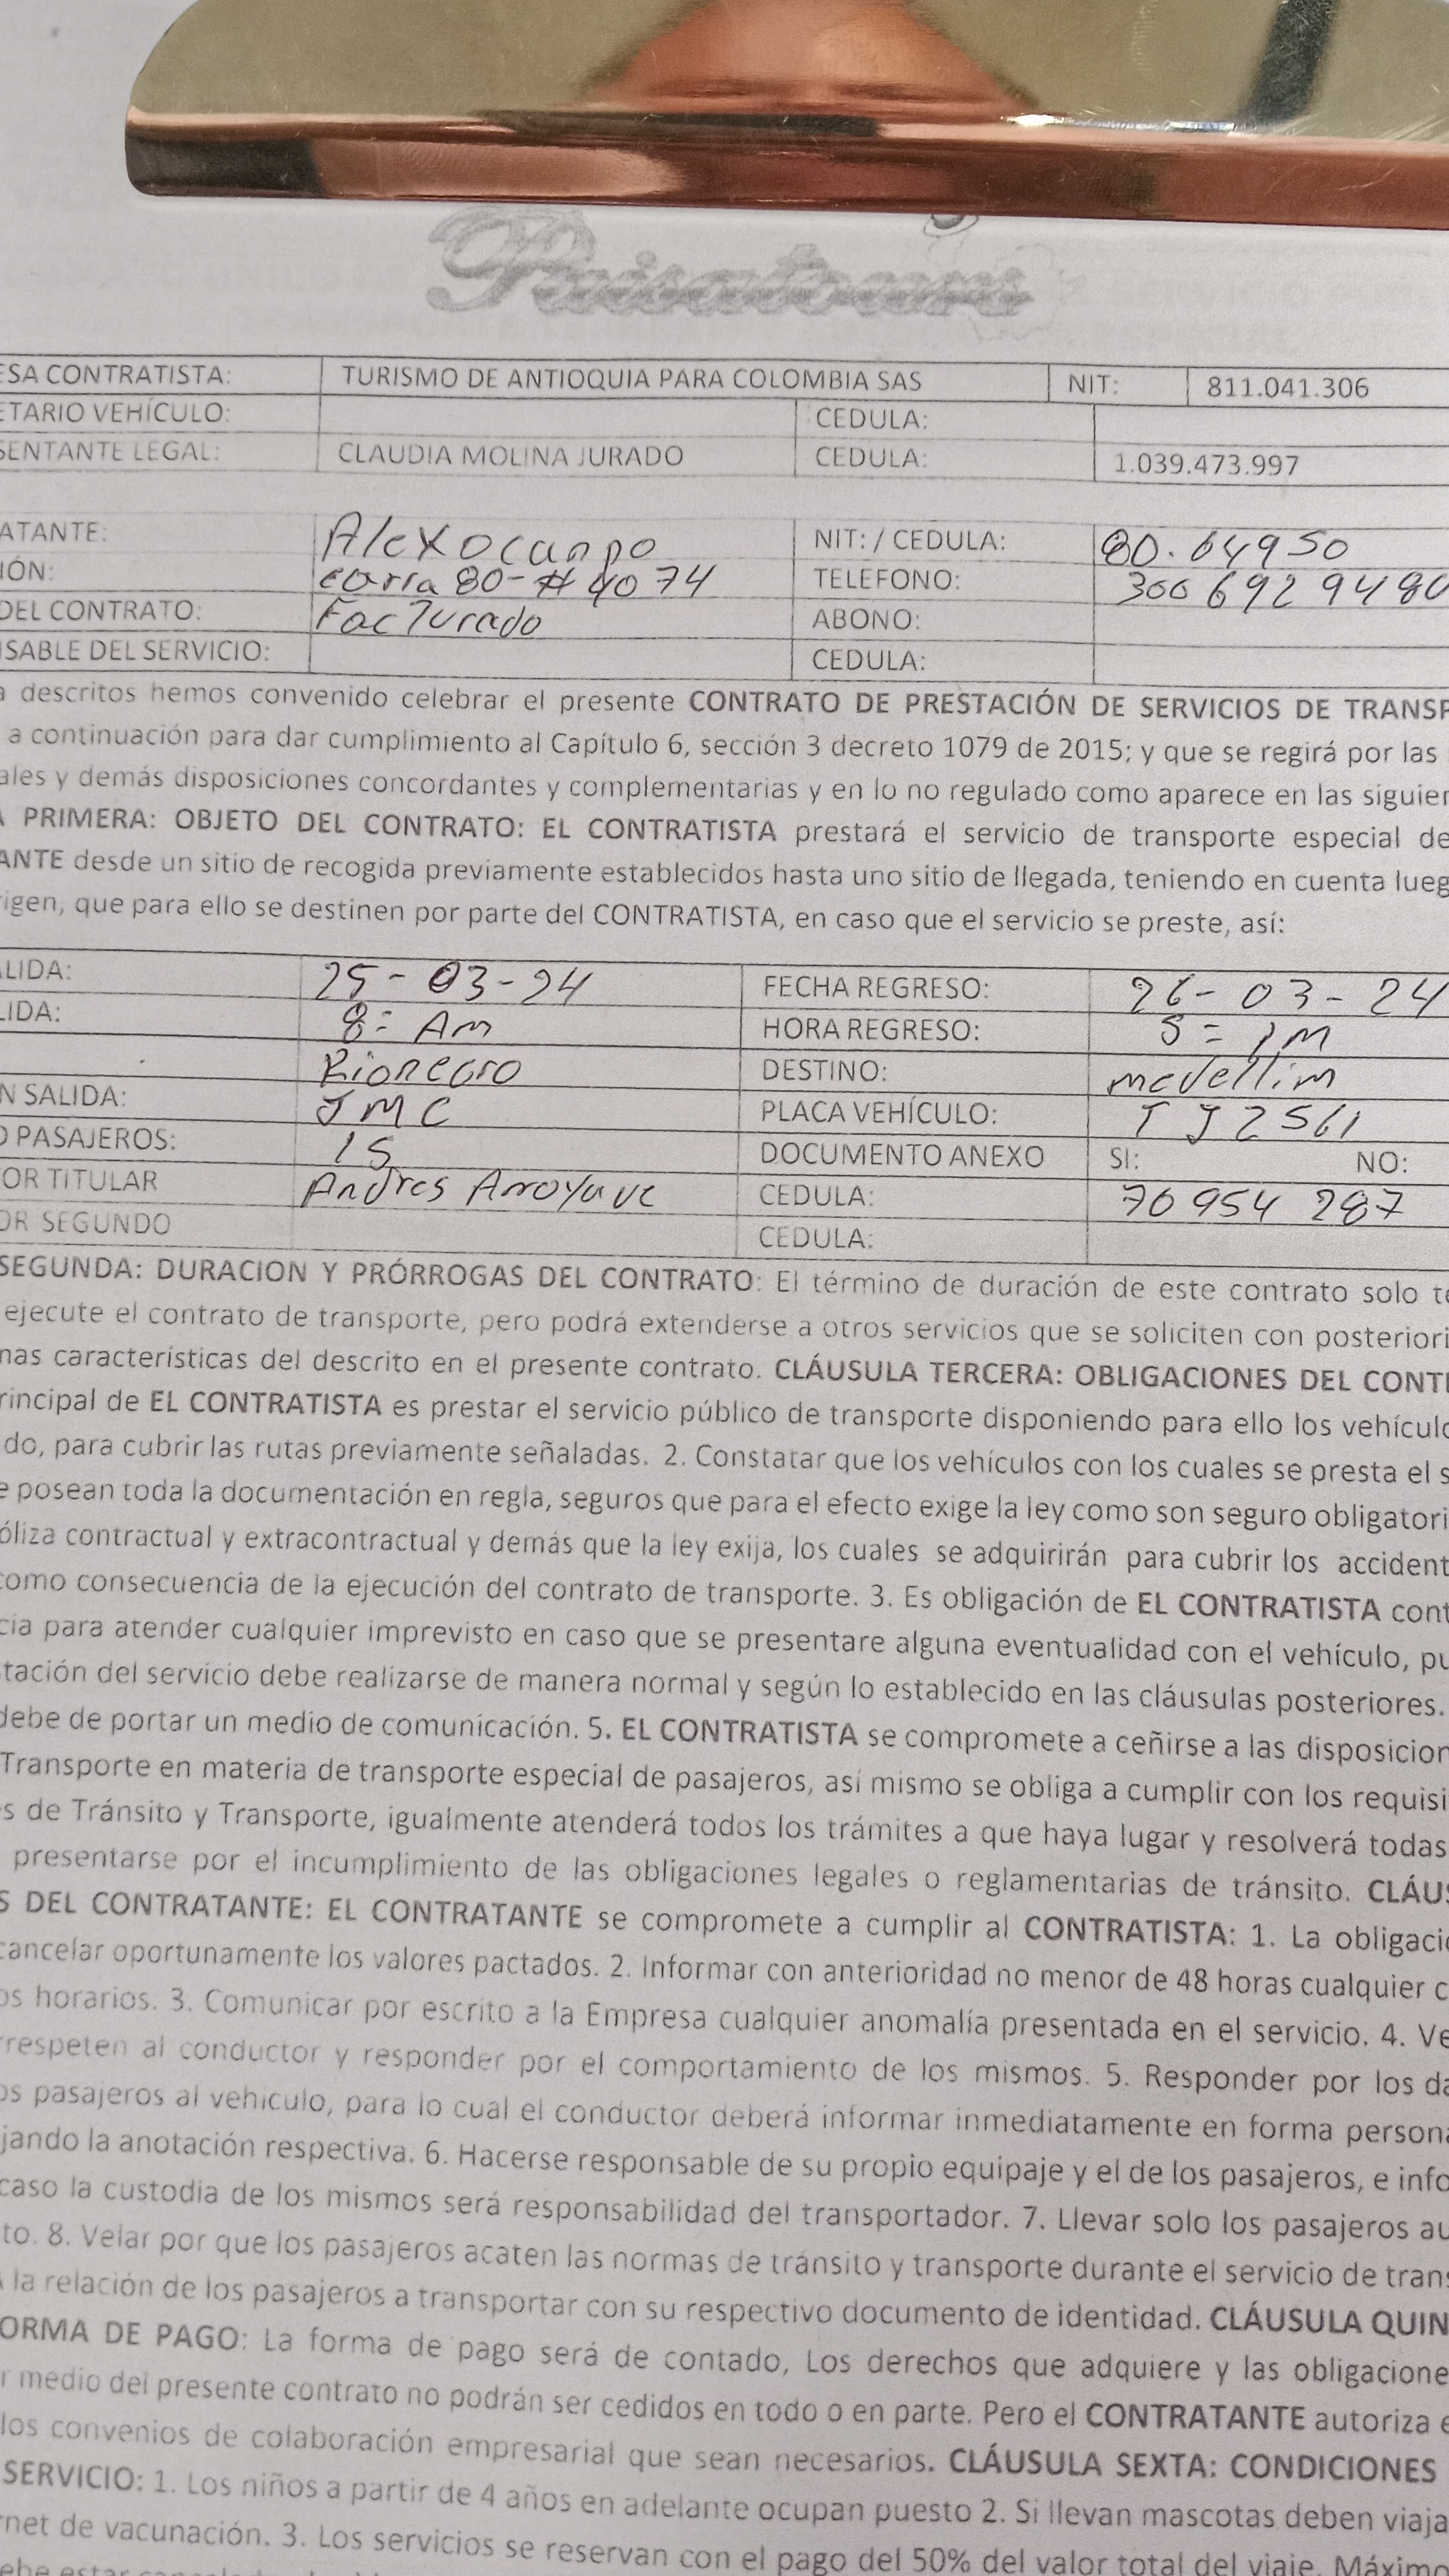 Paisatours
ESA CONTRATISTA: TURISMO DE ANTIOQUIA PARA COLOMBIA SAS NIT: 811.041.306
ETARIO VEHÍCULO: CEDULA:
SENTANTE LEGAL: CLAUDIA MOLINA JURADO CEDULA: 1.039.473.997
ATANTE: Alexocanpo NIT: / CEDULA: 80.64950
IÓN: carra 80-# 4074 TELEFONO: 300 692 9480
DEL CONTRATO: Facturado ABONO:
ISABLE DEL SERVICIO: CEDULA:
a descritos hemos convenido celebrar el presente CONTRATO DE PRESTACIÓN DE SERVICIOS DE TRANSP
a continuación para dar cumplimiento al Capítulo 6, sección 3 decreto 1079 de 2015; y que se regirá por las
ales y demás disposiciones concordantes y complementarias y en lo no regulado como aparece en las siguien
A PRIMERA: OBJETO DEL CONTRATO: EL CONTRATISTA prestará el servicio de transporte especial de
ANTE desde un sitio de recogida previamente establecidos hasta uno sitio de llegada, teniendo en cuenta lueg
rigen, que para ello se destinen por parte del CONTRATISTA, en caso que el servicio se preste, así:
ALIDA: 25-03-24 FECHA REGRESO: 26-03-24
LIDA: 8= AM HORA REGRESO: 5= PM
Rionegro DESTINO: medellim
N SALIDA: JMC PLACA VEHÍCULO: TJZ561
O PASAJEROS: 15 DOCUMENTO ANEXO SI: NO:
OR TITULAR Andres Arroyave CEDULA: 70954 287
OR SEGUNDO CEDULA:
SEGUNDA: DURACION Y PRÓRROGAS DEL CONTRATO: El término de duración de este contrato solo te
ejecute el contrato de transporte, pero podrá extenderse a otros servicios que se soliciten con posteriori
mas características del descrito en el presente contrato. CLÁUSULA TERCERA: OBLIGACIONES DEL CONT
rincipal de EL CONTRATISTA es prestar el servicio público de transporte disponiendo para ello los vehículo
do, para cubrir las rutas previamente señaladas. 2. Constatar que los vehículos con los cuales se presta el s
e posean toda la documentación en regla, seguros que para el efecto exige la ley como son seguro obligatori
óliza contractual y extracontractual y demás que la ley exija, los cuales se adquirirán para cubrir los accident
como consecuencia de la ejecución del contrato de transporte. 3. Es obligación de EL CONTRATISTA cont
cia para atender cualquier imprevisto en caso que se presentare alguna eventualidad con el vehículo, pu
tación del servicio debe realizarse de manera normal y según lo establecido en las cláusulas posteriores.
debe de portar un medio de comunicación. 5. EL CONTRATISTA se compromete a ceñirse a las disposicion
Transporte en materia de transporte especial de pasajeros, así mismo se obliga a cumplir con los requisi
s de Tránsito y Transporte, igualmente atenderá todos los trámites a que haya lugar y resolverá todas
presentarse por el incumplimiento de las obligaciones legales o reglamentarias de tránsito. CLÁUS
S DEL CONTRATANTE: EL CONTRATANTE se compromete a cumplir al CONTRATISTA: 1. La obligació
cancelar oportunamente los valores pactados. 2. Informar con anterioridad no menor de 48 horas cualquier c
os horarios. 3. Comunicar por escrito a la Empresa cualquier anomalía presentada en el servicio. 4. Ve
rrespeten al conductor y responder por el comportamiento de los mismos. 5. Responder por los da
os pasajeros al vehículo, para lo cual el conductor deberá informar inmediatamente en forma persona
jando la anotación respectiva. 6. Hacerse responsable de su propio equipaje y el de los pasajeros, e info
caso la custodia de los mismos será responsabilidad del transportador. 7. Llevar solo los pasajeros au
to. 8. Velar por que los pasajeros acaten las normas de tránsito y transporte durante el servicio de trans
la relación de los pasajeros a transportar con su respectivo documento de identidad. CLÁUSULA QUIN
ORMA DE PAGO: La forma de pago será de contado, Los derechos que adquiere y las obligacione
r medio del presente contrato no podrán ser cedidos en todo o en parte. Pero el CONTRATANTE autoriza e
los convenios de colaboración empresarial que sean necesarios. CLÁUSULA SEXTA: CONDICIONES
SERVICIO: 1. Los niños a partir de 4 años en adelante ocupan puesto 2. Si llevan mascotas deben viaja
rnet de vacunación. 3. Los servicios se reservan con el pago del 50% del valor total del viaje. Máxim